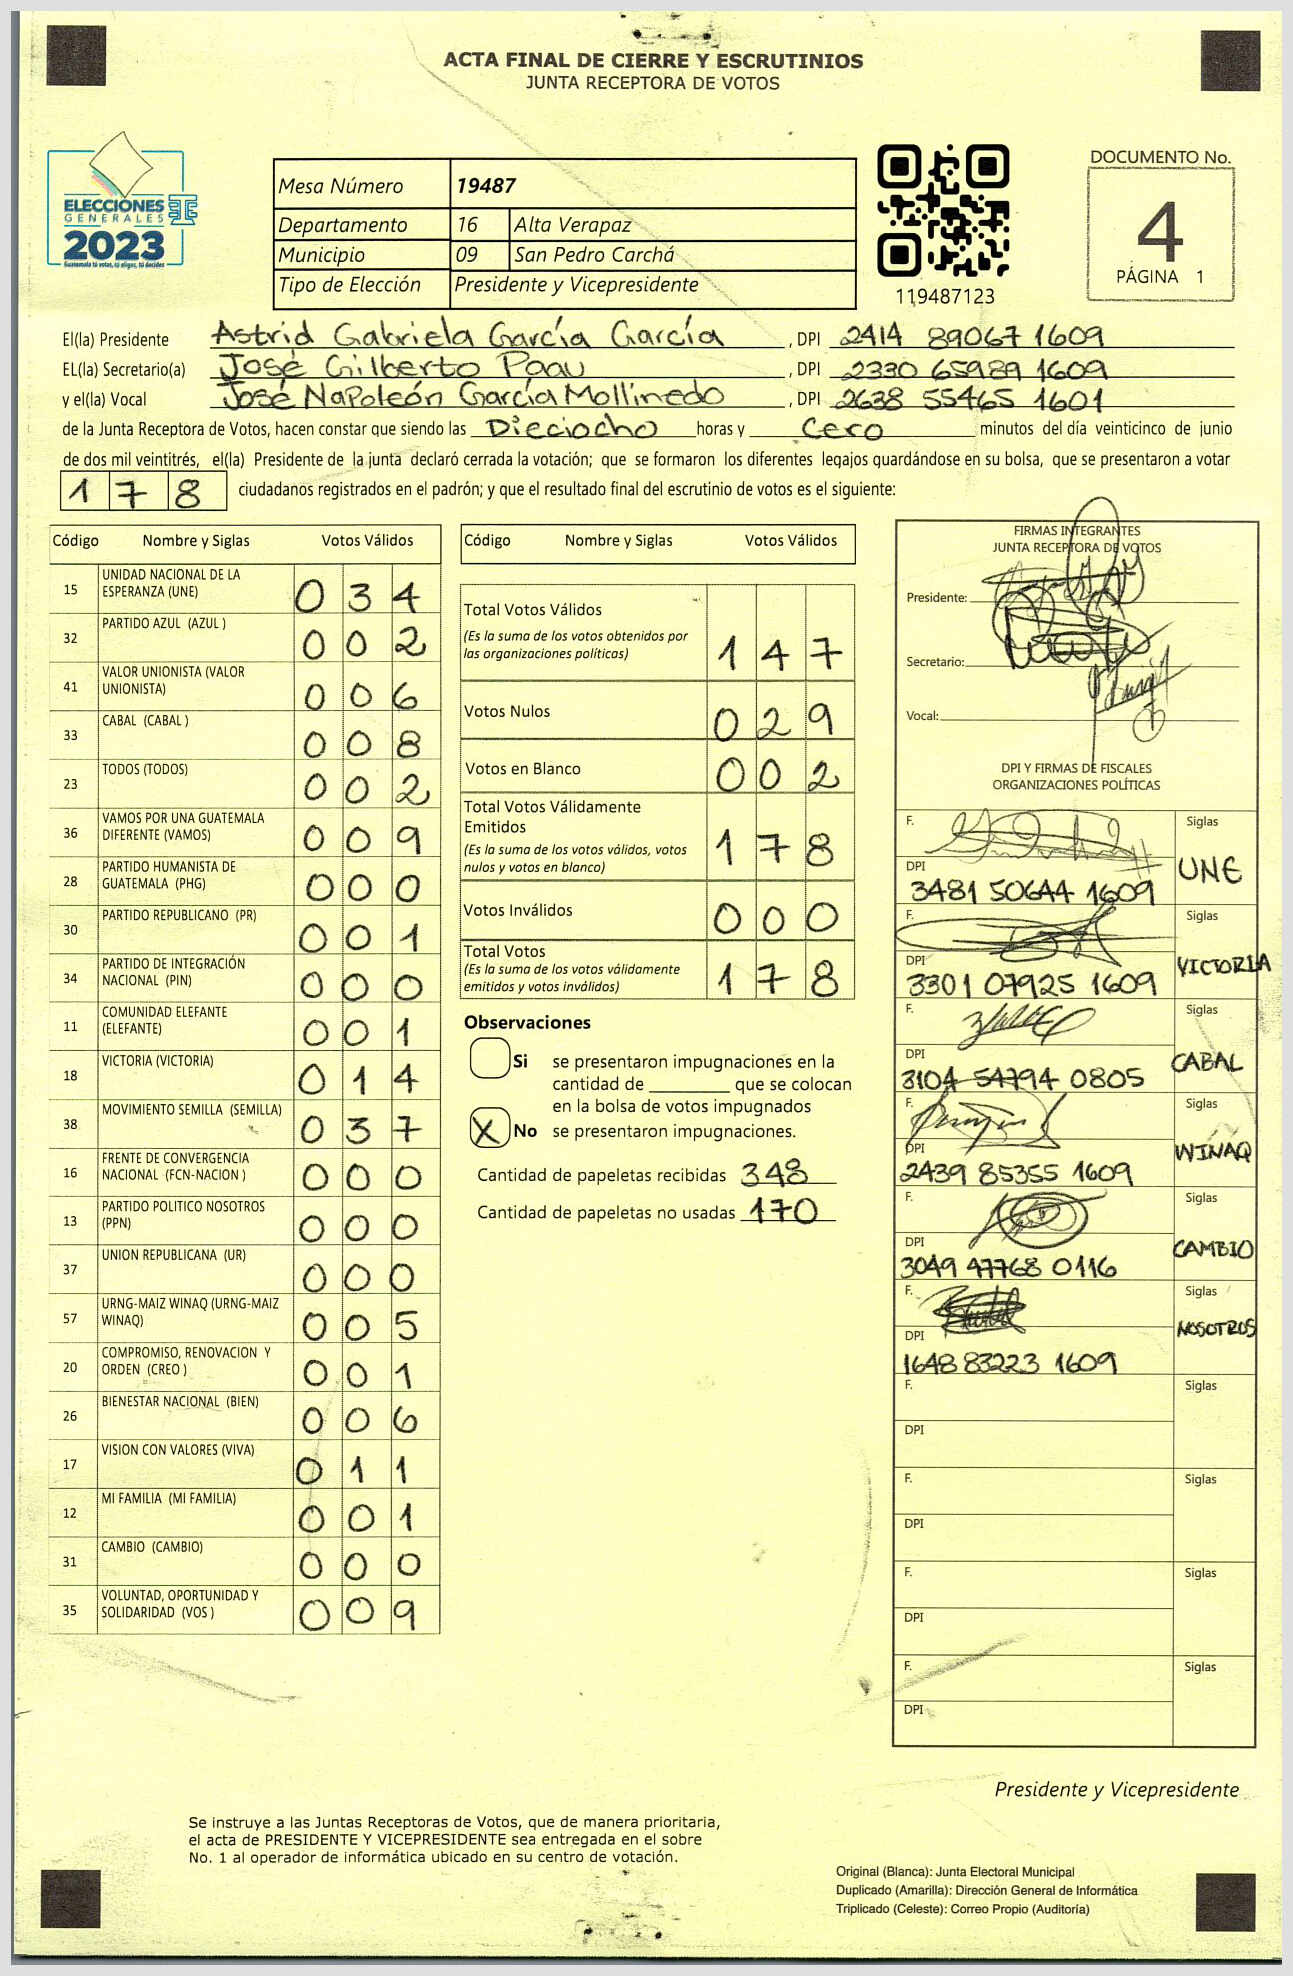 ACTA FINAL DE CIERRE Y ESCRUTINIOS
JUNTA RECEPTORA DE VOTOS
ELECCIONES
GENERALES
2023
Guatemala tú votas, tú eliges, tú decides
Mesa Número 19487
Departamento 16 Alta Verapaz
Municipio 09 San Pedro Carchá
Tipo de Elección Presidente y Vicepresidente
119487123
DOCUMENTO No.
4
PÁGINA 1
El(la) Presidente Astrid Gabriela García García , DPI 2414 89067 1609
EL(la) Secretario(a) José Gilberto Paau , DPI 2330 65989 1609
y el(la) Vocal José Napoleón García Mollinedo , DPI 2638 55465 1601
de la Junta Receptora de Votos, hacen constar que siendo las Dieciocho horas y Cero minutos del día veinticinco de junio
de dos mil veintitrés, el(la) Presidente de la junta declaró cerrada la votación; que se formaron los diferentes legajos guardándose en su bolsa, que se presentaron a votar
178 ciudadanos registrados en el padrón; y que el resultado final del escrutinio de votos es el siguiente:
Código Nombre y Siglas Votos Válidos
15 UNIDAD NACIONAL DE LA ESPERANZA (UNE) 034
32 PARTIDO AZUL (AZUL ) 002
41 VALOR UNIONISTA (VALOR UNIONISTA) 006
33 CABAL (CABAL ) 008
23 TODOS (TODOS) 002
36 VAMOS POR UNA GUATEMALA DIFERENTE (VAMOS) 009
28 PARTIDO HUMANISTA DE GUATEMALA (PHG) 000
30 PARTIDO REPUBLICANO (PR) 001
34 PARTIDO DE INTEGRACIÓN NACIONAL (PIN) 000
11 COMUNIDAD ELEFANTE (ELEFANTE) 001
18 VICTORIA (VICTORIA) 014
38 MOVIMIENTO SEMILLA (SEMILLA) 037
16 FRENTE DE CONVERGENCIA NACIONAL (FCN-NACION ) 000
13 PARTIDO POLITICO NOSOTROS (PPN) 000
37 UNION REPUBLICANA (UR) 000
57 URNG-MAIZ WINAQ (URNG-MAIZ WINAQ) 005
20 COMPROMISO, RENOVACION Y ORDEN (CREO ) 001
26 BIENESTAR NACIONAL (BIEN) 006
17 VISION CON VALORES (VIVA) 011
12 MI FAMILIA (MI FAMILIA) 001
31 CAMBIO (CAMBIO) 000
35 VOLUNTAD, OPORTUNIDAD Y SOLIDARIDAD (VOS ) 009
Código Nombre y Siglas Votos Válidos
Total Votos Válidos
(Es la suma de los votos obtenidos por
las organizaciones políticas) 147
Votos Nulos 029
Votos en Blanco 002
Total Votos Válidamente
Emitidos
(Es la suma de los votos válidos, votos
nulos y votos en blanco) 178
Votos Inválidos 000
Total Votos
(Es la suma de los votos válidamente
emitidos y votos inválidos) 178
Observaciones
Si se presentaron impugnaciones en la
cantidad de ________ que se colocan
en la bolsa de votos impugnados
X No se presentaron impugnaciones.
Cantidad de papeletas recibidas 348
Cantidad de papeletas no usadas 170
FIRMAS INTEGRANTES
JUNTA RECEPTORA DE VOTOS
Presidente:
Secretario:
Vocal:
DPI Y FIRMAS DE FISCALES
ORGANIZACIONES POLÍTICAS
F. Siglas
DPI UNE
3481 50644 1609
F. Siglas
DPI VICTORIA
3301 07925 1609
F. Siglas
DPI CABAL
3104 54794 0805
F. Siglas
DPI WINAQ
2439 85355 1609
F. Siglas
DPI CAMBIO
3049 47768 0116
F. Siglas
DPI NOSOTROS
1648 83223 1609
F. Siglas
DPI
F. Siglas
DPI
F. Siglas
DPI
F. Siglas
DPI
Presidente y Vicepresidente
Se instruye a las Juntas Receptoras de Votos, que de manera prioritaria,
el acta de PRESIDENTE Y VICEPRESIDENTE sea entregada en el sobre
No. 1 al operador de informática ubicado en su centro de votación.
Original (Blanca): Junta Electoral Municipal
Duplicado (Amarilla): Dirección General de Informática
Triplicado (Celeste): Correo Propio (Auditoría)